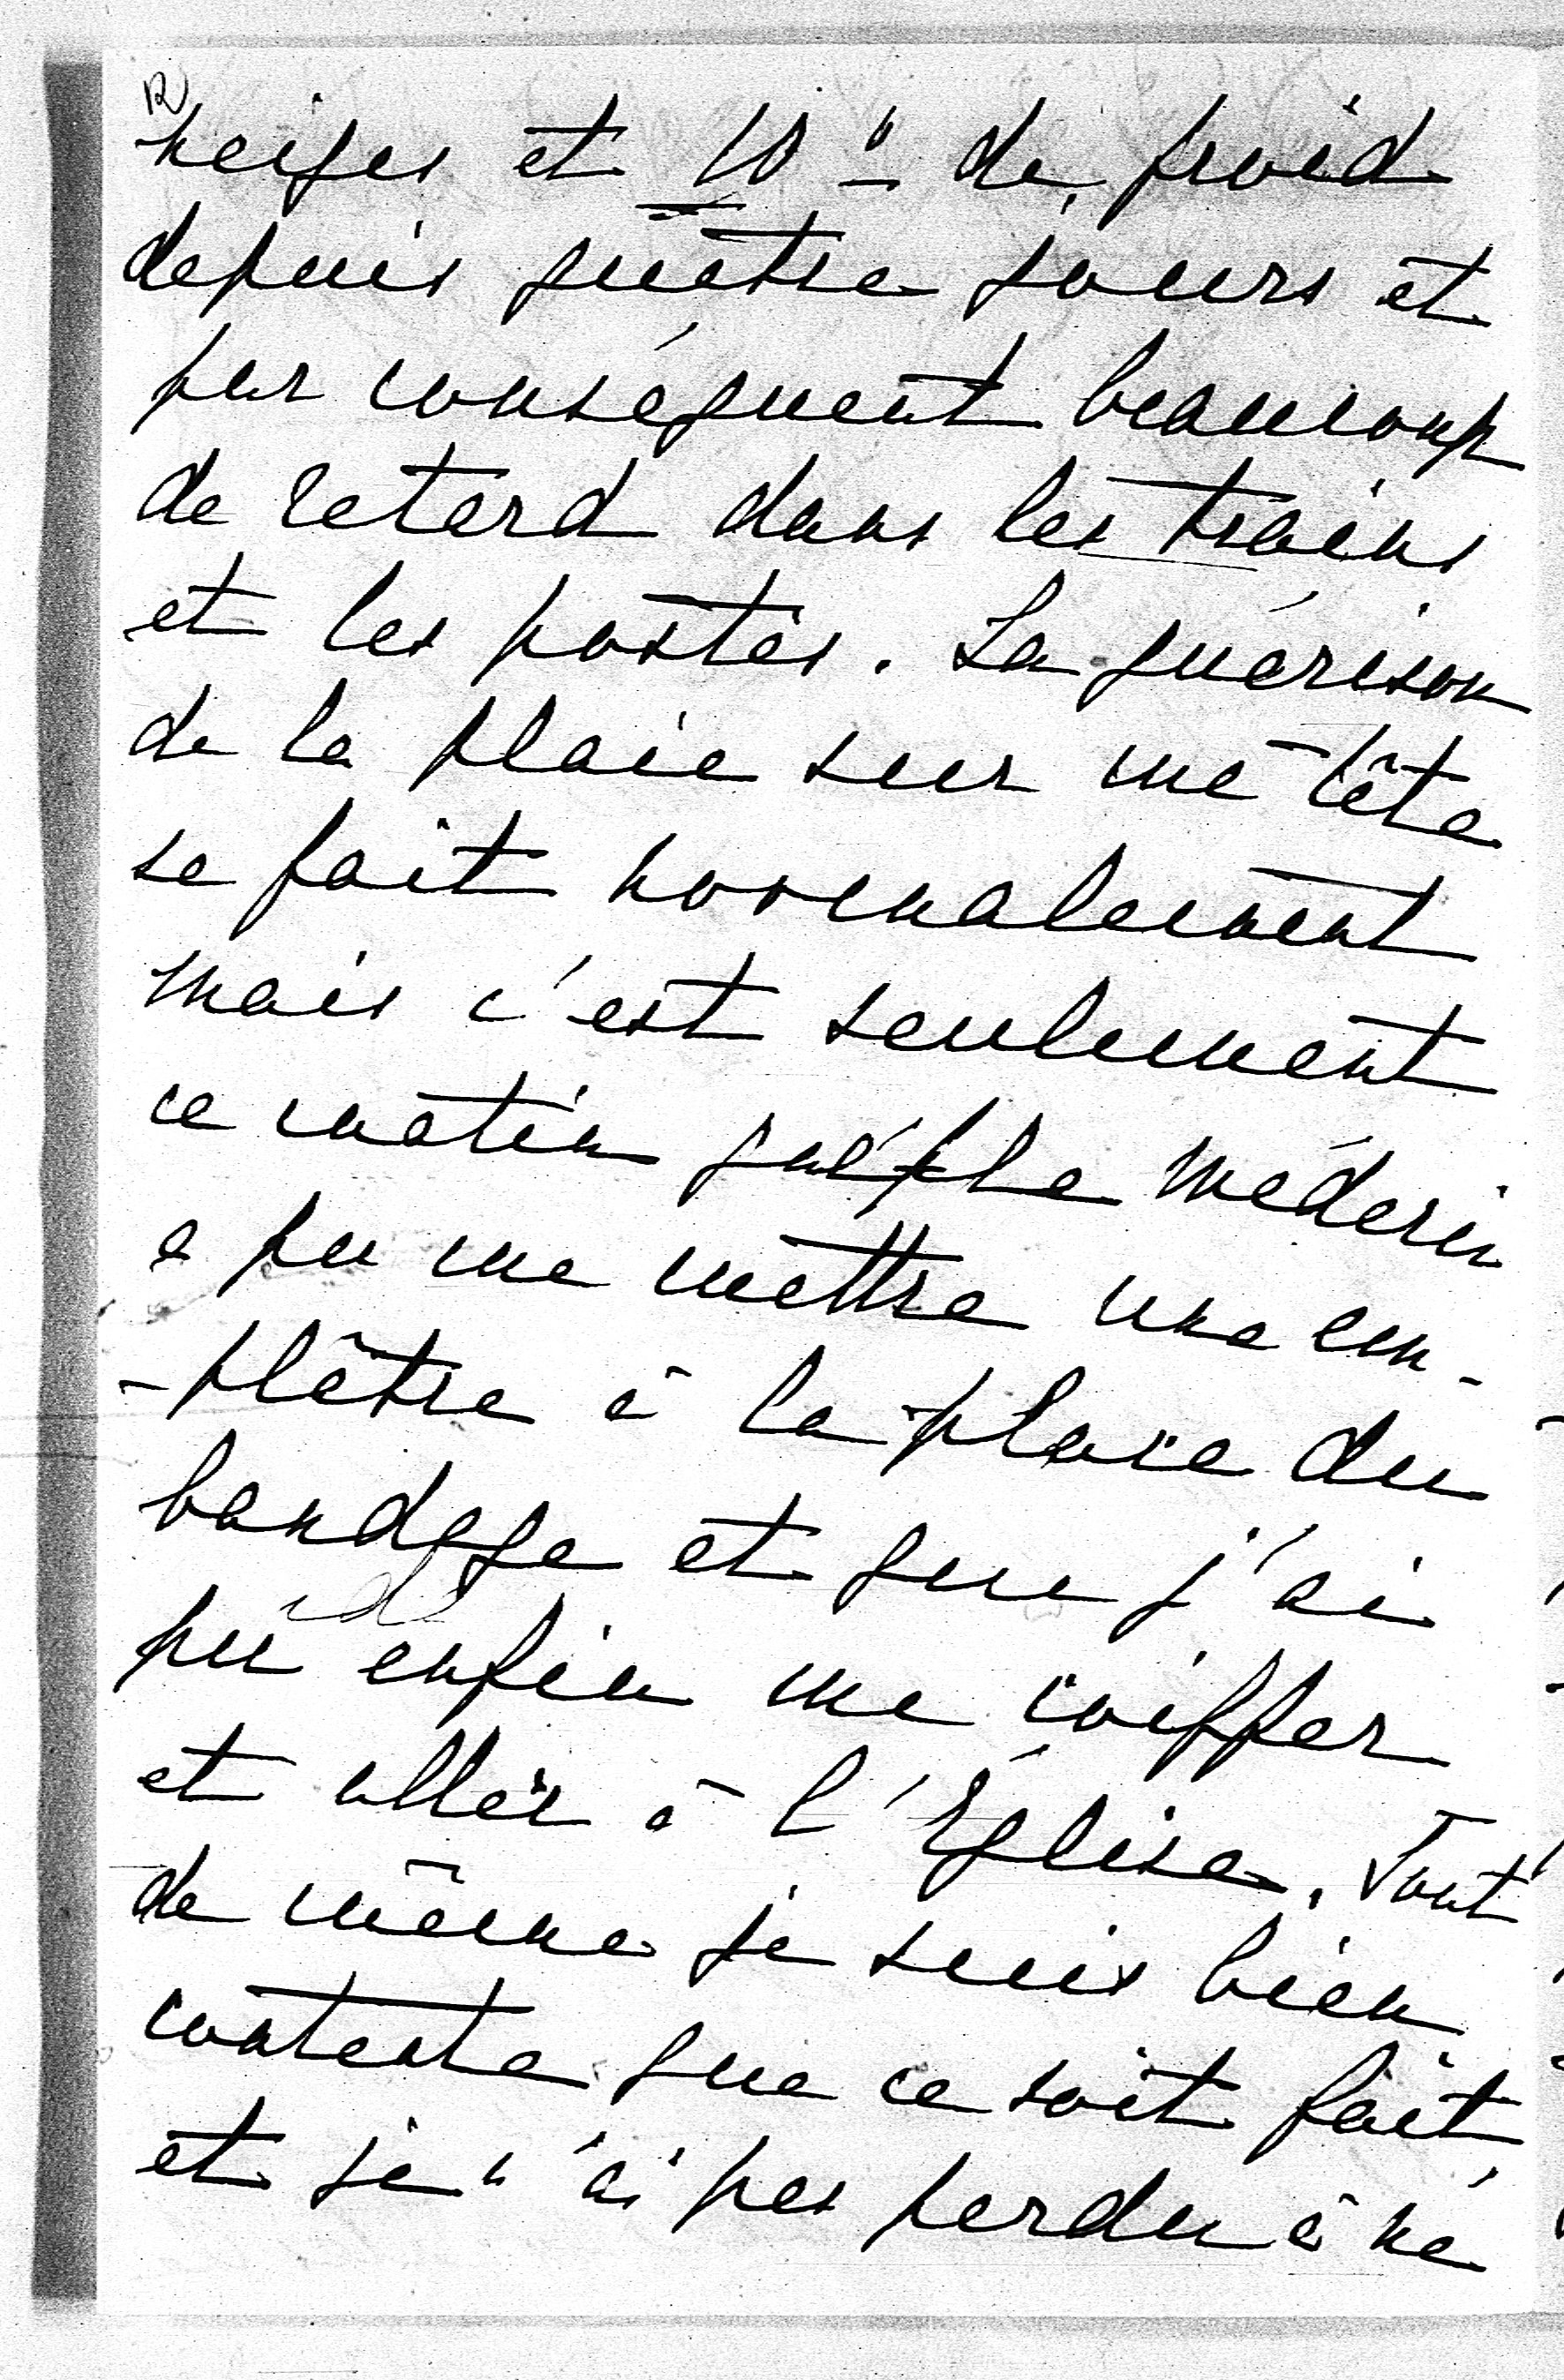 neiges et 10° de froid
depuis quatre jours et
par conséquent beaucoup
de retard dans les trains
et les postes. La guérison
de la plaie sur ma tête
se fait normalement
mais c'est seulement
ce matin que le médecin
a pu me mettre une em-
-plâtre à la place du
bandage et que j'ai
pu enfin me coiffer
et aller à l'Église. Tout
de même je suis bien
contente que ce soit fait
et je n'ai pas perdu à ne